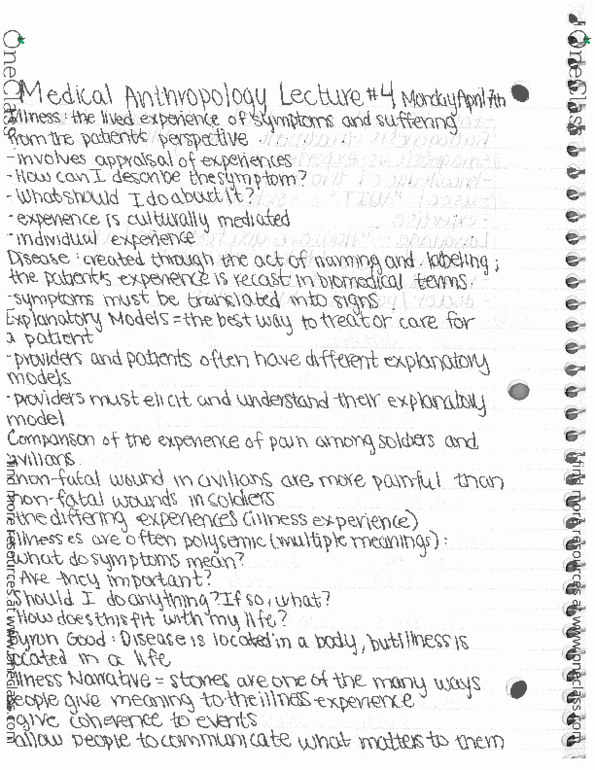 Medical Anthropology Lecture #4 Monday April 7th
Illness: the lived experience of symptoms and suffering
from the patient's perspective
-involves appraisal of experiences
-How can I describe the symptom?
-What should I do about it?
-experience is culturally mediated
-individual experience
Disease: created through the act of naming and labeling;
the patient's experience is recast in biomedical terms.
-symptoms must be translated into signs.
Explanatory Models = the best way to treat or care for
a patient
-providers and patients often have different explanatory
models
-providers must elicit and understand their explanatory
model
Comparison of the experience of pain among soldiers and
civilians
-non-fatal wound in civilians are more painful than
non-fatal wounds in soldiers
-the differing experiences (illness experience)
Illnesses are often polysemic (multiple meanings):
What do symptoms mean?
Are they important?
Should I do anything? If so, what?
How does this fit with my life?
Byron Good: Disease is located in a body, but illness is
located in a life
Illness Narrative = stories are one of the many ways
people give meaning to the illness experience
-give coherence to events
-allow people to communicate what matters to them
OneClass
find more resources at www.oneclass.com
OneClass
find more resources at www.oneclass.com